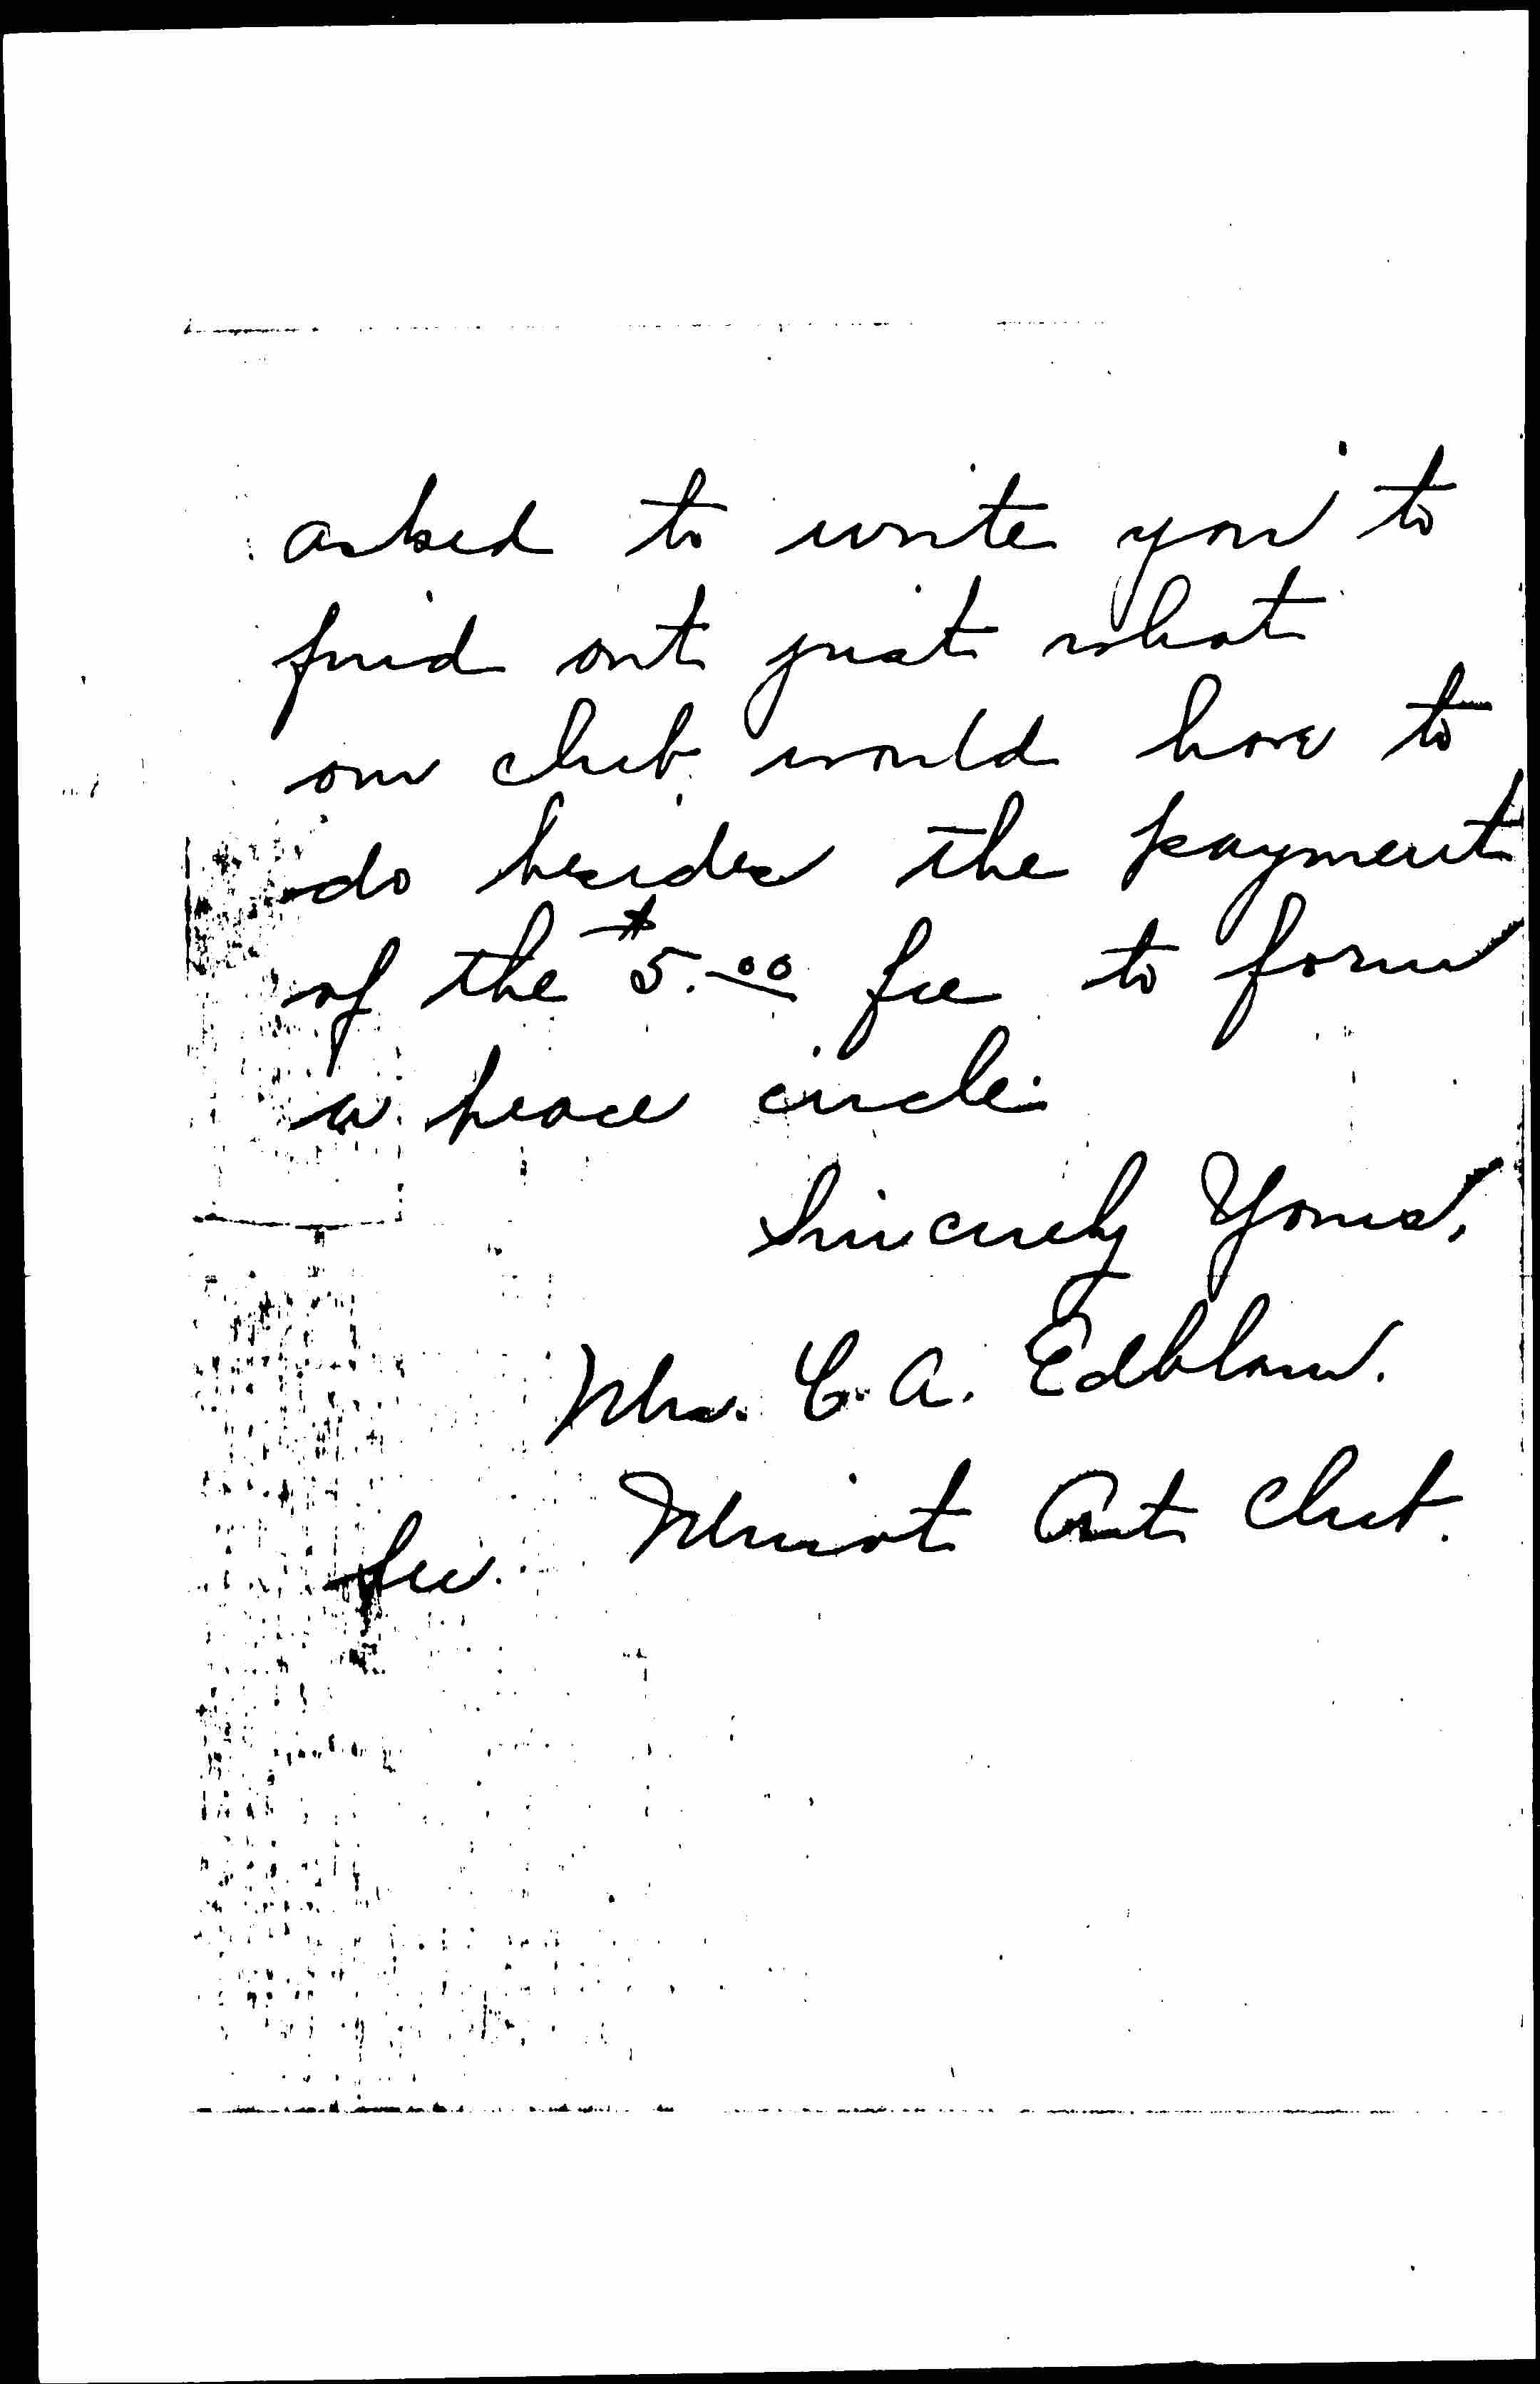 asked to write you to
find out just what
our club would have to
do besides the payment
of the $5.00 fee to form
a peace circle.
Sincerely Yours,
Mrs. C. A. Edblom.
Sec. Minot Art Club.